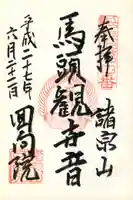 奉拝
諸宗山
馬頭観世音
回向院
平成二十七年
六月二十二日